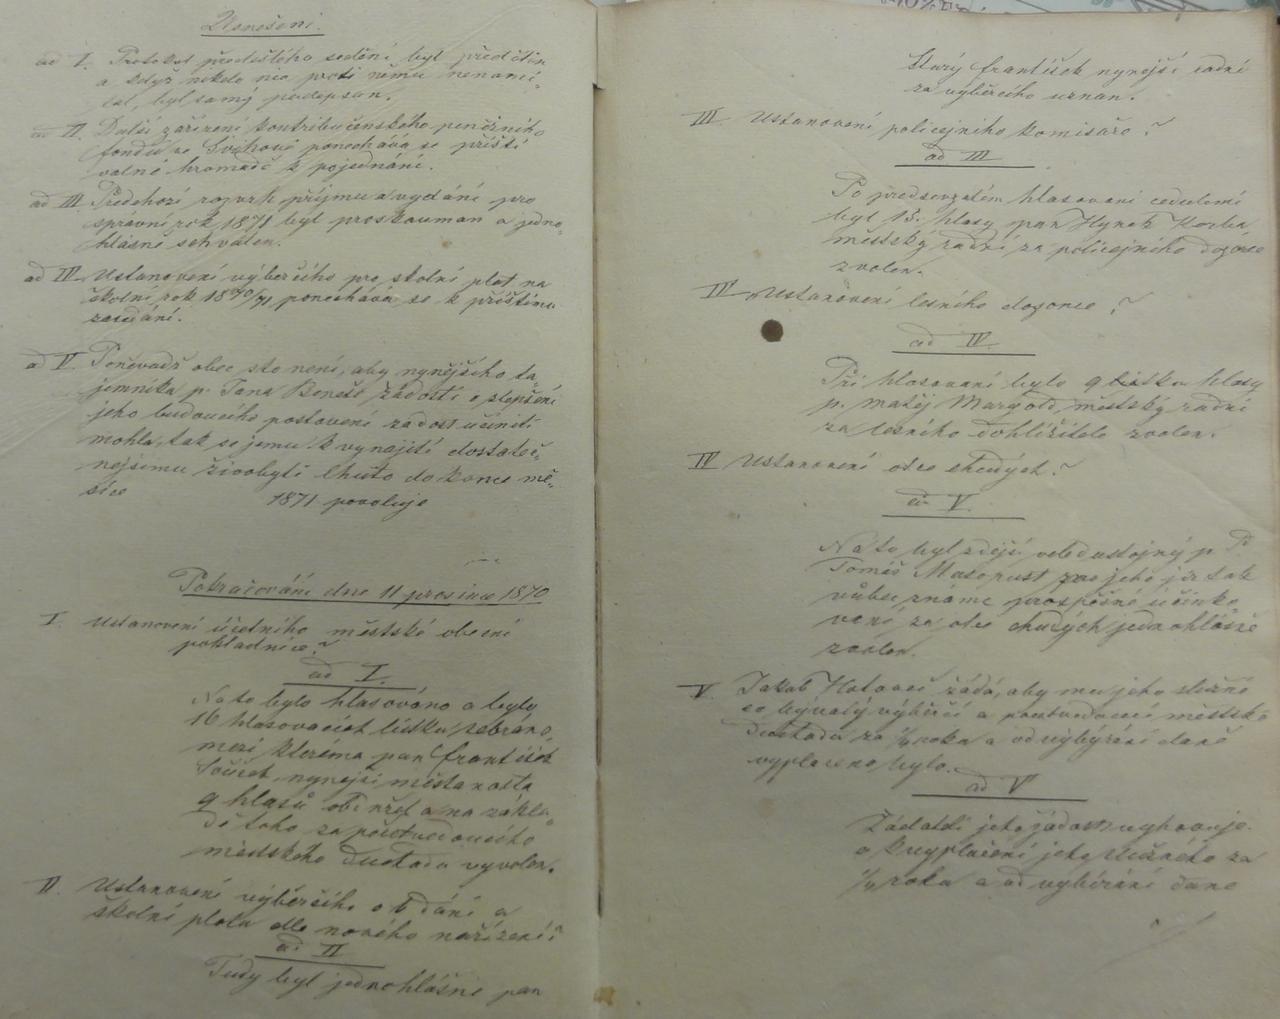 Usnešení.
ad I. Protokol předešlého sedění byl předčítán
a když nikdo nic proti němu nenamí-
tal, byl samý podepsán.
ad II. Další zařízení kontribučenského peněžního
fondu ve Švihově ponechává se příští
valné hromadě k pojednání.
ad III. Předchozí rozvrh příjmu a vydání pro
správní rok 1871 byl proskouman a jedno-
hlásně schválen.
ad IV. Ustanovení výběrčího pro školní plat na
školní rok 1870/71 ponechává se k příštímu
zasedání.
ad V. Poněvadž obec sto není, aby nynějšího ta-
jemníka p. Jana Beneše žádosti o zlepšení
jeho budoucího postavení zadost učiniti
mohla, tak se jemu k vynajití dostateč-
nejšímu živobytí lhůta do konce mě-
síce 1871 povoluje
Pokračování dne 11 prosince 1870
I. Ustanovení účetního městské obecní
pokladnice?
ad I.
Na to bylo hlasováno a bylo
16 hlasovacích lístků sebráno,
mezi kterema pan František
nynejší měšťanosta
9 hlasů obdržel a na zákla-
dě toho za počtvedoucího
městského důchodu vyvolen.
II. Ustanovení výběrčího o dání a
školní platu dle nového nařízení?
ad II
Tudy byl jednohlásně pan
Starý František nynejší radní
za výběrčího uznan.
III. Ustanovení policejního komisaře?
ad III
Po předsevzatém hlasovaní cedulemi
byl 15. hlasy pan Hynek
městský radní za policejního dozorce
zvolen.
IV. Ustanovení lesního dozorce?
ad IV.
Při hlasovaní bylo 9 lístku hlasy
p. Matěj Margold, městský radní
za lesního dohlížitele zvolen.
IV Ustanovení otce chudých?
ad V.
Na to byl zdejší veledustojný p. P.
Tomáš Masopust pro jeho již tak
vůbec známé prospěšné účinko-
vaní za otce chudých jednohlásně
zvolen.
V. Jakub žádá, aby mu jeho služné
co bývalý výběrčí a počtvedoucí městského
důchodu za 1/4 roku a od vybýrání daně
vyplaceno bylo.
ad V
Žádateli jeho žádost vyhovuje
o k vyplacení jeho služného za
1/4 roku a od vybírání daně